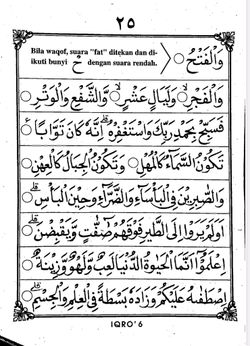 ٢٥
Bila waqof, suara "fat" ditekan dan di-
ikuti bunyi حْ dengan suara rendah.
وَالْفَتْحُ ○
وَالْفَجْرِ ○ وَلَيَالٍ عَشْرٍ ○ وَالشَّفْعِ وَالْوَتْرِ ○
فَسَبِّحْ بِحَمْدِ رَبِّكَ وَاسْتَغْفِرْهُ اِنَّهُ كَانَ تَوَّابًا ○
تَكُوْنُ السَّمَآءُ كَالْمُهْلِ ○ وَتَكُوْنُ الْجِبَالُ كَالْعِهْنِ ○
وَالصَّبِرِيْنَ فِى الْبَأْسَآءِ وَالضَّرَّآءِ وَحِيْنَ الْبَأْسِ ○
اَوَلَمْ يَرَوْا اِلَى الطَّيْرِ فَوْقَهُمْ صٰفّٰتٍ وَّيَقْبِضْنَ ○
اِعْلَمُوْآ اَنَّمَا الْحَيٰوةُ الدُّنْيَا لَعِبٌ وَّلَهْوٌ وَّزِيْنَةٌ ○
اصْطَفٰهُ عَلَيْكُمْ وَزَادَهُ بَسْطَةً فِى الْعِلْمِ وَالْجِسْمِ ○
IQRO' 6